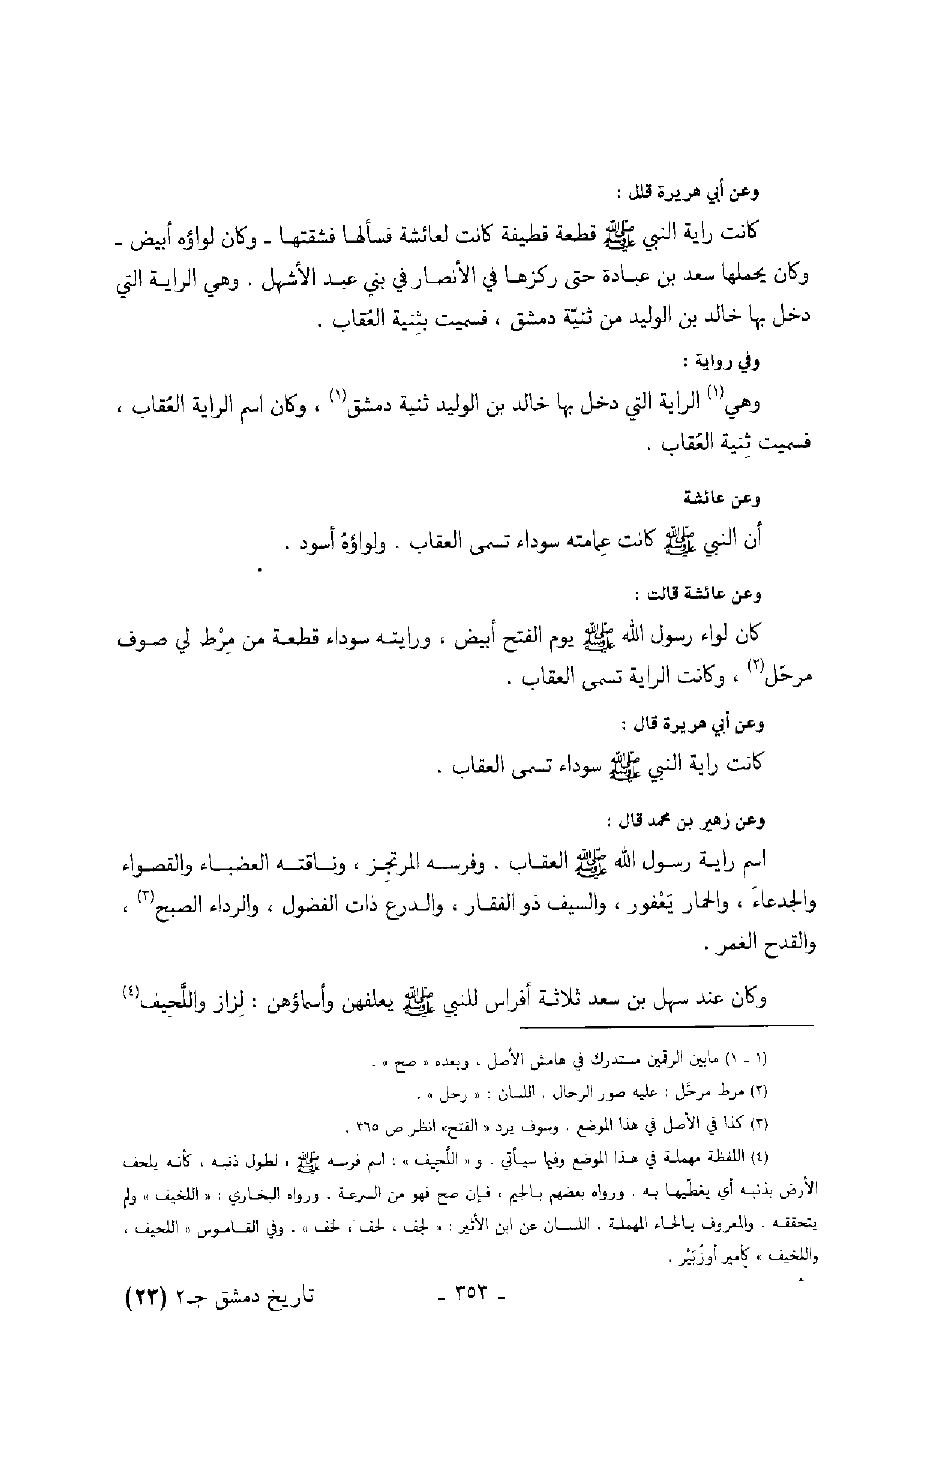 وعن أبي هريرة قلل :
كانت راية النبي ﷺ قطعة قطيفة كانت لعائشة فسألها فشقتها ـ وكان لواؤه أبيض ـ
وكان يحملها سعد بن عبادة حتى ركزها في الأنصار في بني عبد الأشهل . وهي الراية التي
دخل بها خالد بن الوليد من ثنيّة دمشق ، فسميت بثنية العُقاب .
وفي رواية :
وهي(١) الراية التي دخل بها خالد بن الوليد ثنية دمشق(١) ، وكان اسم الراية العُقاب ،
فسميت ثنية العُقاب .
وعن عائشة
أن النبي ﷺ كانت عِمامته سوداء تسمى العقاب . ولواؤهُ أسود .
وعن عائشة قالت :
كان لواء رسول الله ﷺ يوم الفتح أبيض ، ورايته سوداء قطعة من مِرْط لي صوف
مرحّل(٢) ، وكانت الراية تسمى العقاب .
وعن أبي هريرة قال :
كانت راية النبي ﷺ سوداء تسمى العقاب .
وعن زهير بن محمد قال :
اسم راية رسول الله ﷺ العقاب . وفرسه المرتجِز ، وناقته العضباء والقصواء
والجدعاءَ ، والحمار يَعْفور ، والسيف ذو الفقار ، والدرع ذات الفضول ، والرداء الصبح(٣) ،
والقدح الغمر .
وكان عند سهل بن سعد ثلاثة أفراس للنبي ﷺ يعلفهن وأسماؤهن : لِزاز واللَّحيف(٤)
(١ ـ ١) مابين الرقمين مستدرك في هامش الأصل ، وبعده « صح » .
(٢) مرط مرحَّل : عليه صور الرحال . اللسان : « رحل » .
(٣) كذا في الأصل في هذا الموضع . وسوف يرد « الفتح» انظر ص ٣٦٥ .
(٤) اللفظة مهملة في هذا الموضع وفيما سيأتي . و « اللَّحيف » : اسم فرسه ﷺ ، لطول ذنبه ، كأنه يلحف
الأرض بذنبه أي يغطّيها به . ورواه بعضهم بالجيم ، فإن صح فهو من السرعة . ورواه البخاري : « اللخيف » ولم
يتحققه . والمعروف بالحاء المهملة . اللسان عن ابن الأثير : « لجف ، لحف ، لخف » . وفي القاموس « اللحيف ،
واللخيف » كأمير أو زُبَيْر .
ـ ٣٥٣ ـ
تاريخ دمشق جـ٢ (٢٣)